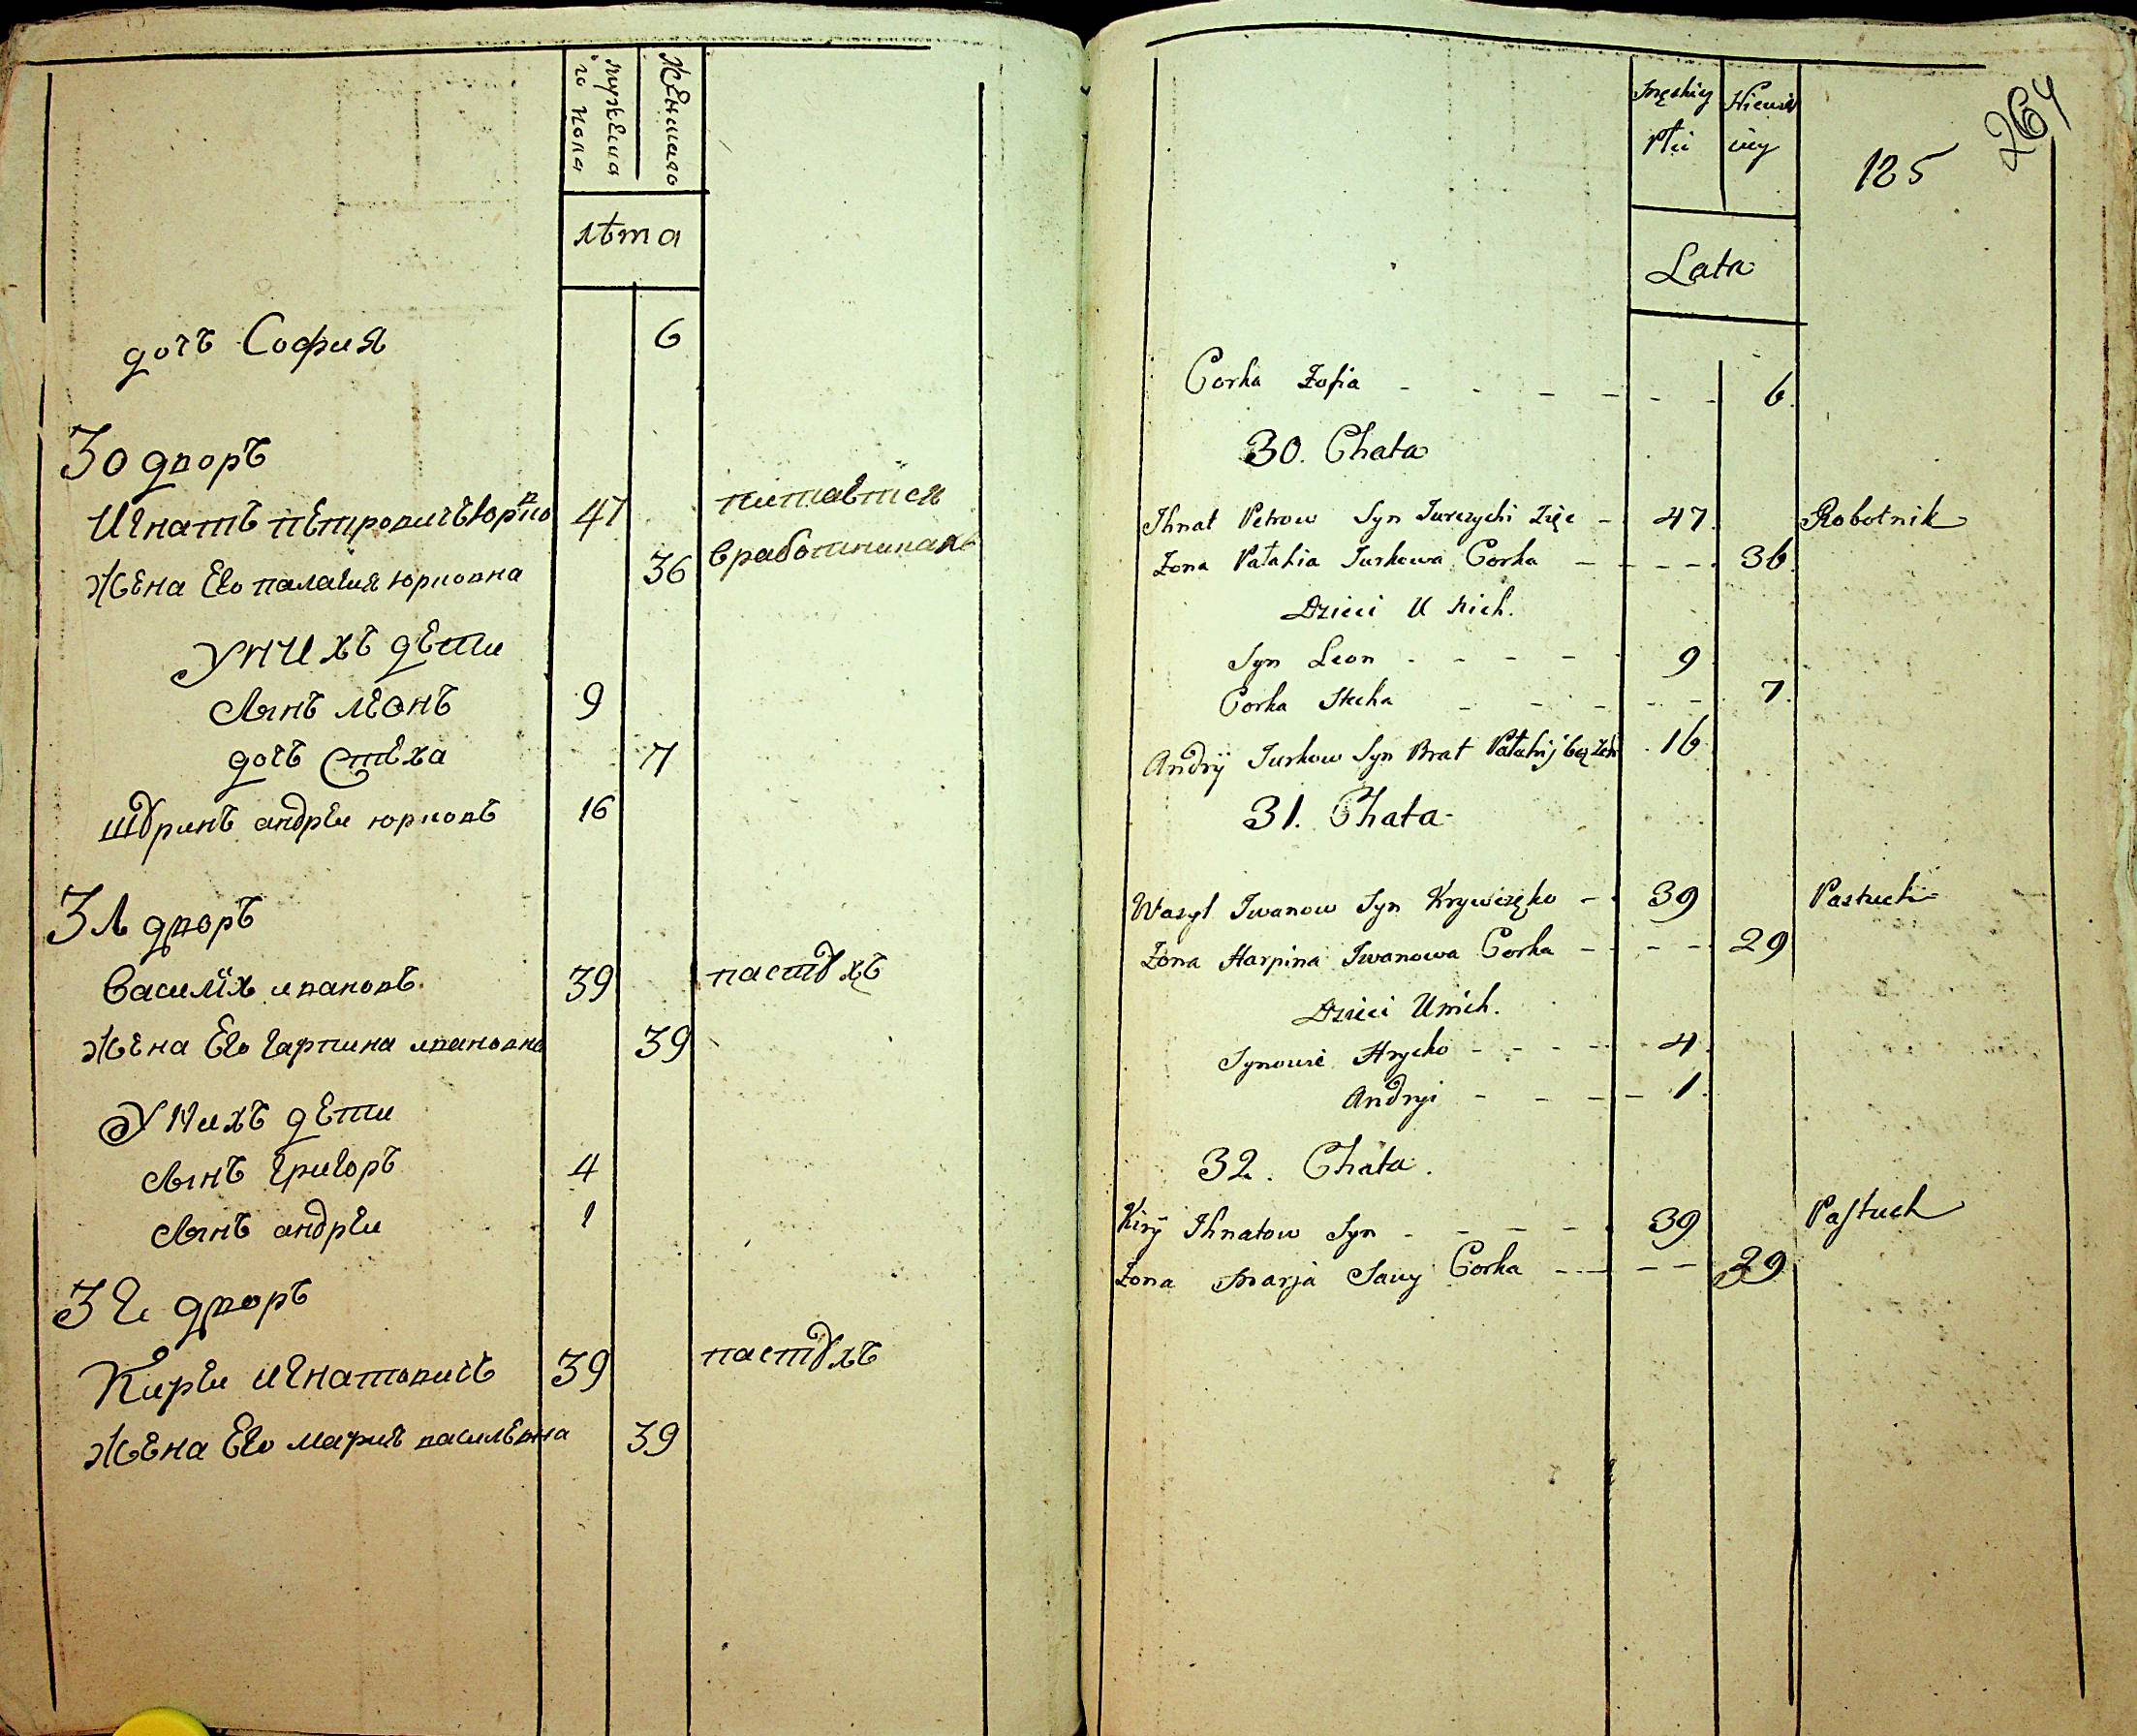 мужеска
го пола
женшаго
лѣта
дочь София 6
30 дворъ
Игнатъ петровичъ 47 питается
Жена Его палагия юрковна 36 в работникахъ
У нихъ дети
Сынъ леонъ 9
дочь стеха 7
шуринъ андреи юрковъ 16
31 дворъ
Василїй ивановъ 39 пастухъ
Жена Его гарпина ивановна 39
У нихъ дети
Сынъ григоръ 4
Сынъ андреи 1
32 дворъ
Киреи игнатовичъ 39 пастухъ
Жена Его мария васильевна 39
264
125
Męskiy
Płci
Lata
Corka Zofia - - - - - - 6.
30. Chata
Ihnat Petrow Syn Jurczychi Zięc - 47. Robotnik
Zona Pałahia Jurkowa Corka - - - - 36.
Dzieci U nich.
Syn Leon - - - - 9
Corka Stecha - - - - - 7.
Andrij Jurkow Syn Brat Pałahij 16
31. Chata
Wasyl Iwanow Syn Krywiczęko - 39 Pastuch
Zona Harpina Iwanowa Corka - - - - 29
Dzieci U nich.
Synowie Hrycko - - - - 4.
Andryi - - - - 1.
32. Chata.
Kiryi Ihnatow Syn - - - - 39 Pastuch
Zona Marja Sawy Corka - - - - 29